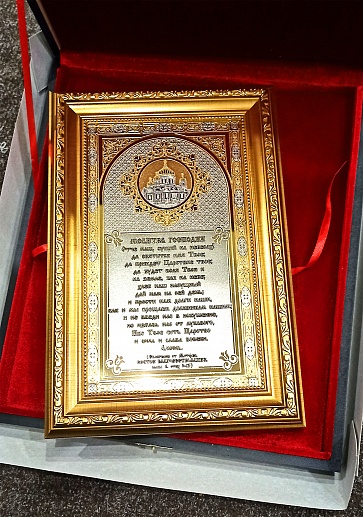 Молитва Господня
Отче наш, сущий на небесах!
да святится имя Твое;
да приидет Царствие Твое;
да будет воля Твоя и
на земле, как на небе;
хлеб наш насущный
дай нам на сей день;
и прости нам долги наши,
как и мы прощаем должникам нашим;
и не введи нас в искушение,
но избавь нас от лукавого,
Ибо Твое есть Царство
и сила и слава вовеки.
Аминь.
(Евангелие от Матфея,